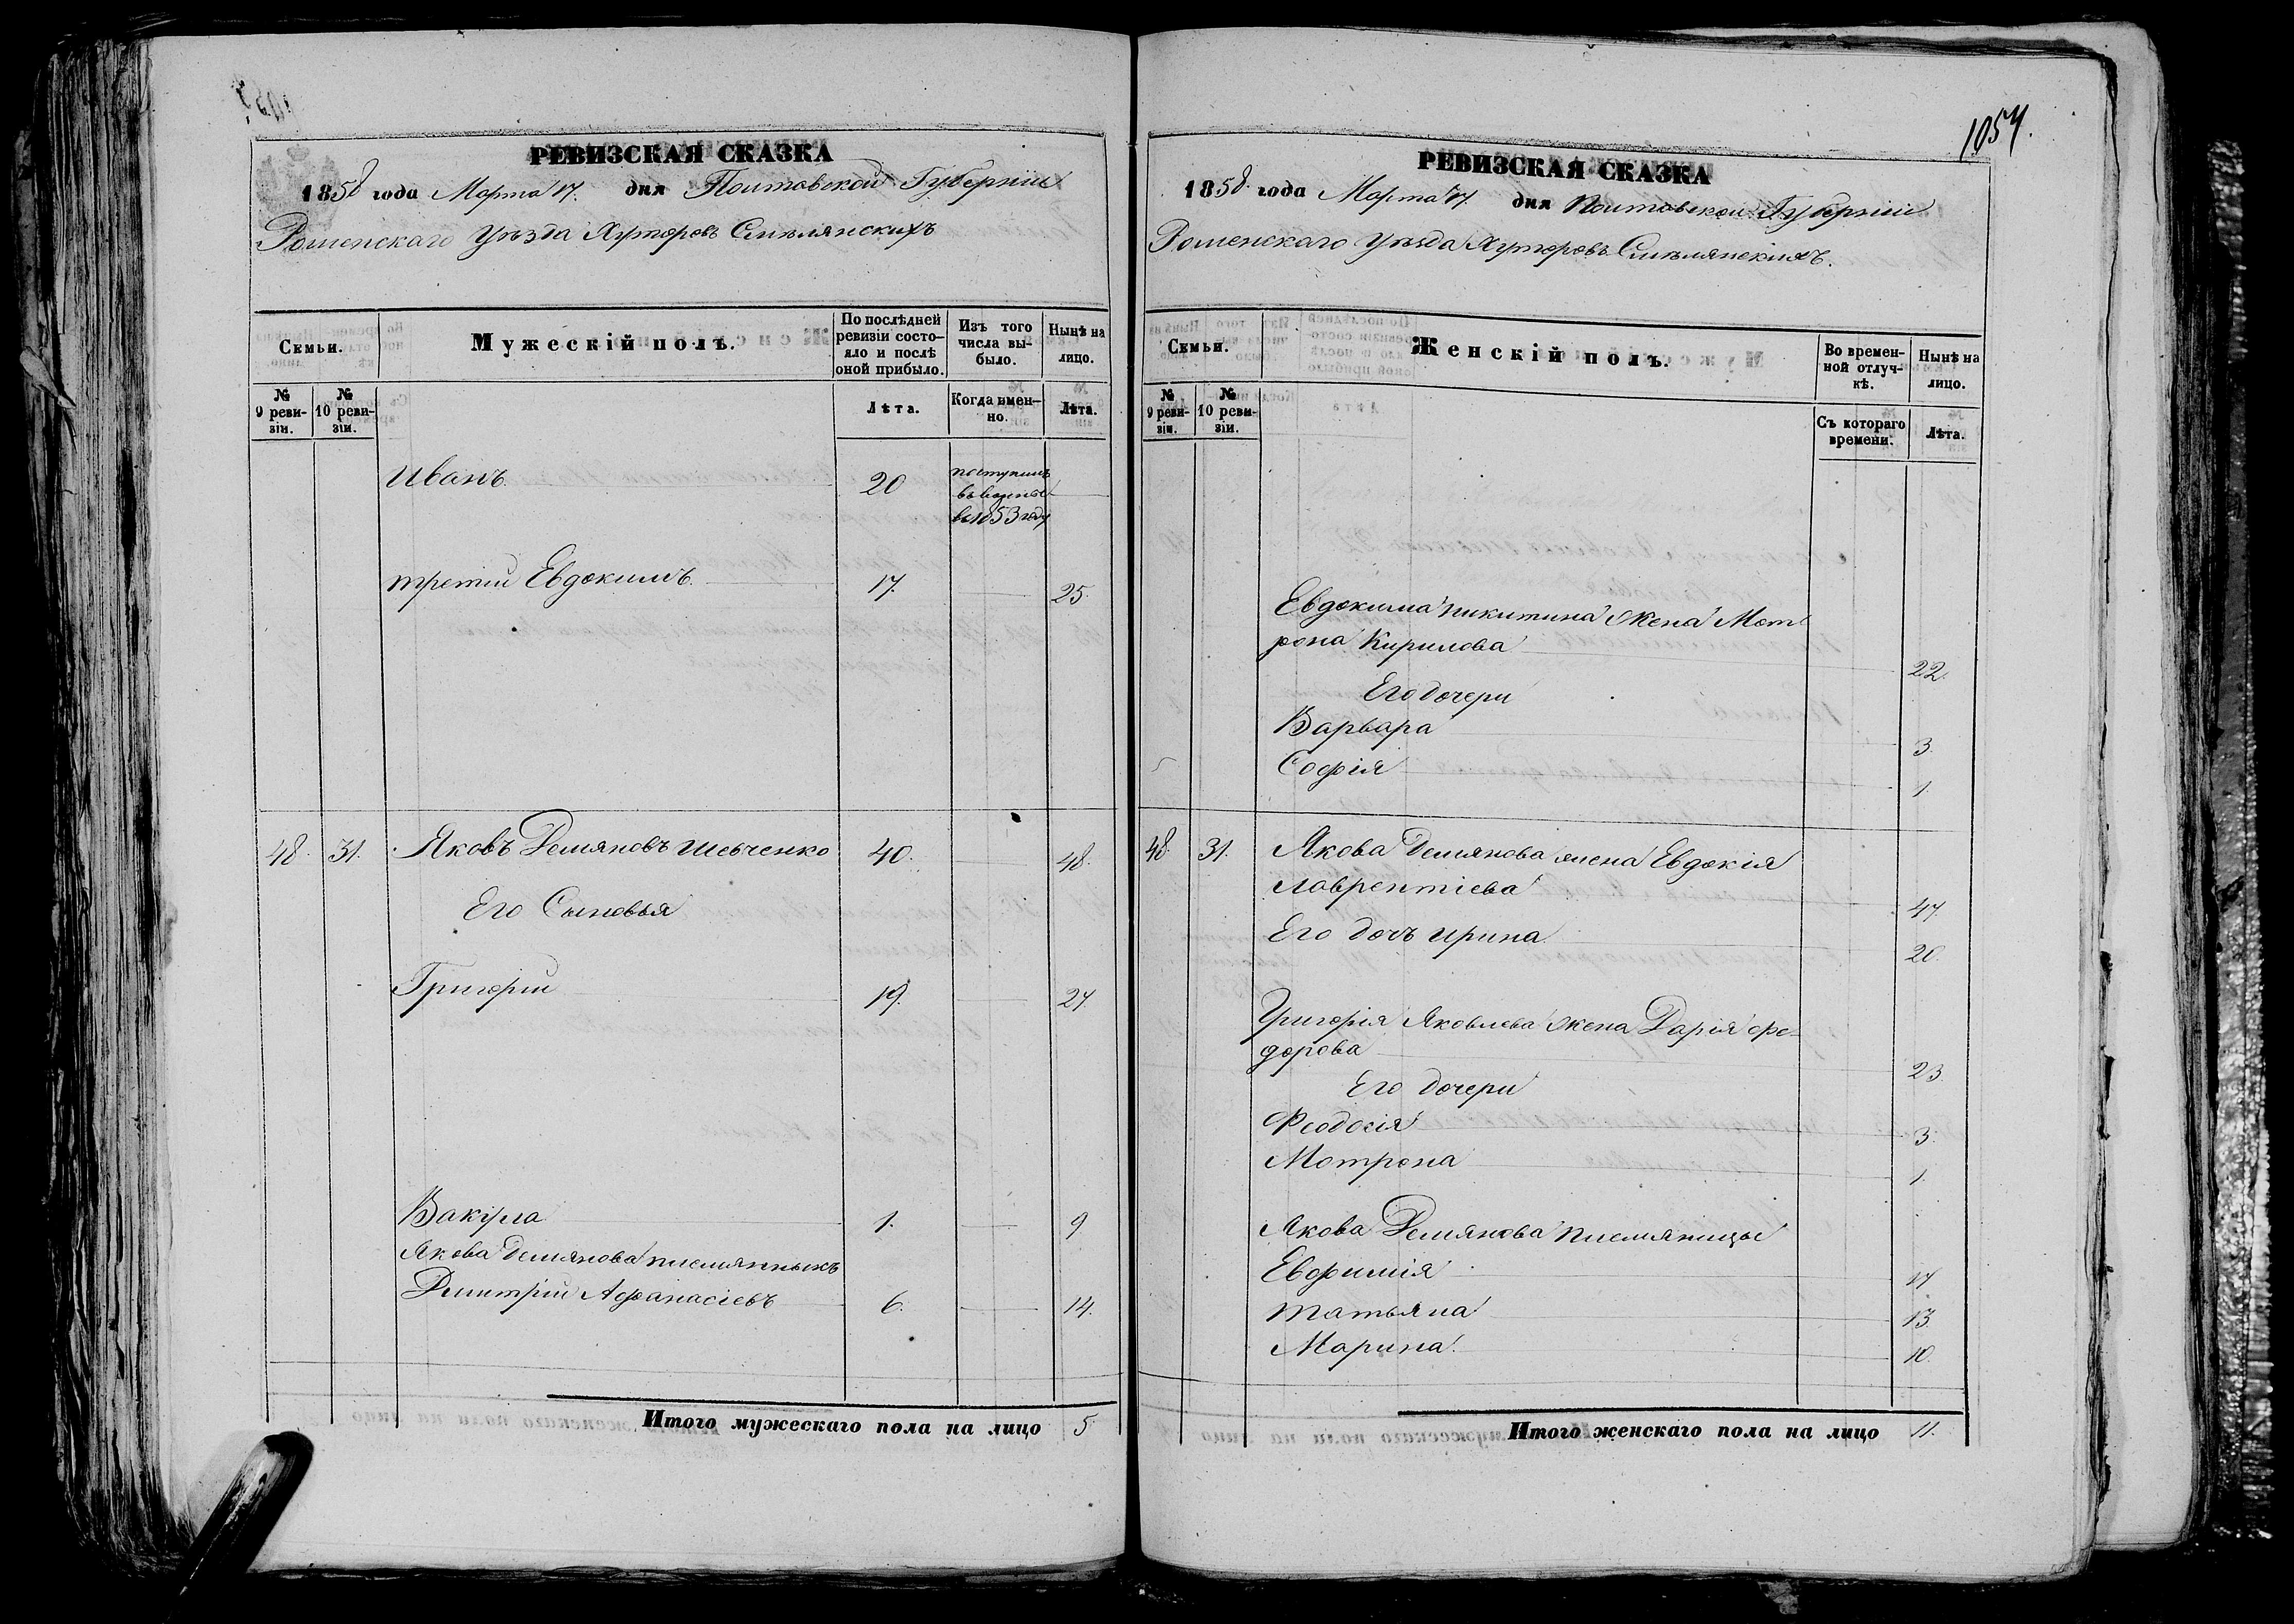 1054.
РЕВИЗСКАЯ СКАЗКА
1858 года Марта 17. дня Полтавской Губерніи
Роменскаго Уѣзда Хуторовъ Смѣлянскихъ
Семьи.
Мужескій полъ.
По послѣдней ревизіи состояло и послѣ оной прибыло.
Изъ того числа выбыло.
Нынѣ на лицо.
№ 9 ревизіи.
№ 10 ревизіи.
Лѣта.
Когда именно.
Лѣта.
Иванъ 20 поступилъ
въ 1853 году
третій Евдокимъ. 17. 25.
48. 31. Яковъ Демяновъ Шевченко 40. 48.
Его Сыновья
Григорій 19. 27.
Вакула 1. 9
Якова Демянова племянникъ
Дмитрій Афанасіевъ 6. 14.
Итого мужескаго пола на лицо 5
РЕВИЗСКАЯ СКАЗКА
1858. года Марта 17. дня Полтавской Губерніи
Роменскаго Уѣзда Хуторовъ Смѣлянскихъ.
Семьи.
Женскій полъ.
Во временной отлучкѣ.
Нынѣ на лицо.
№ 9 ревизіи.
№ 10 ревизіи.
Съ котораго времени.
Лѣта.
Евдокима Никитина Жена Мот
рона Кирилова 22.
Его дочери
Варвара 3.
Софія 1.
48. 31. Якова Демянова жена Евдокія
Лаврентіева 47.
Его дочь Ирина 20.
Григорія Яковлева Жена Дарія Фе-
дорова 23.
Его дочери
Феодосія 3.
Мотрона 1.
Якова Демянова племяницы
Евфимія 17
Татьяна 13.
Марина. 10.
Итого женскаго пола на лицо 11.